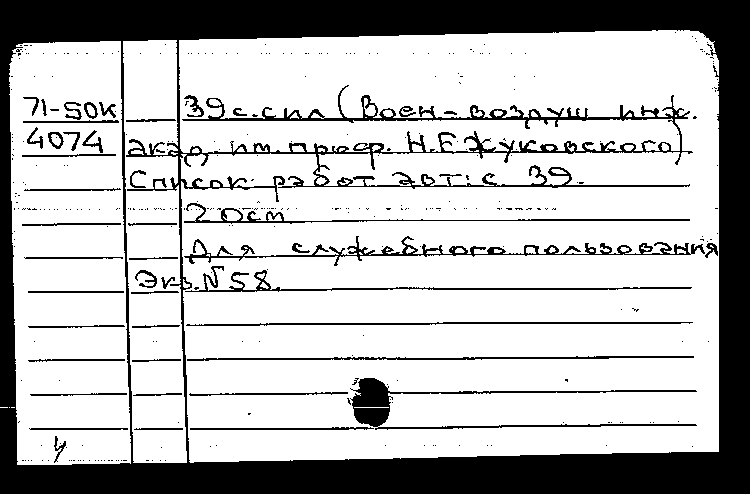 71-50К 39 с. сил (Воен-воздуш инж.
4074 акад, им. проф. Н.Е Жуковского)
Список работ авт: с. 39.
2 0ст
Для служебного пользования
Экз. № 58.